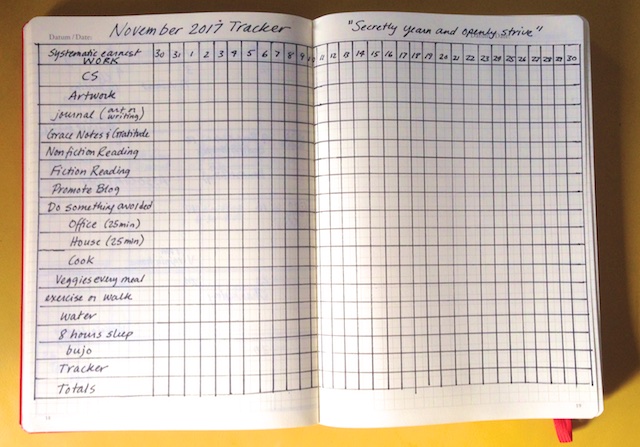 Datum / Date:
November 2017 Tracker
"Secretly yearn and openly strive"
Systematic earnest
WORK
30 31 1 2 3 4 5 6 7 8 9 10 11 12 13 14 15 16 17 18 19 20 21 22 23 24 25 26 27 28 29 30
CS
Artwork
journal (art or
writing)
Grace Notes & Gratitude
Nonfiction Reading
Fiction Reading
Promote Blog
Do something avoided
Office (25min)
House (25min)
Cook
Veggies every meal
exercise or walk
water
8 hours sleep
bujo
Tracker
Totals